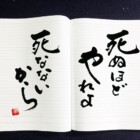 死ぬほど
やれよ
死なない
から